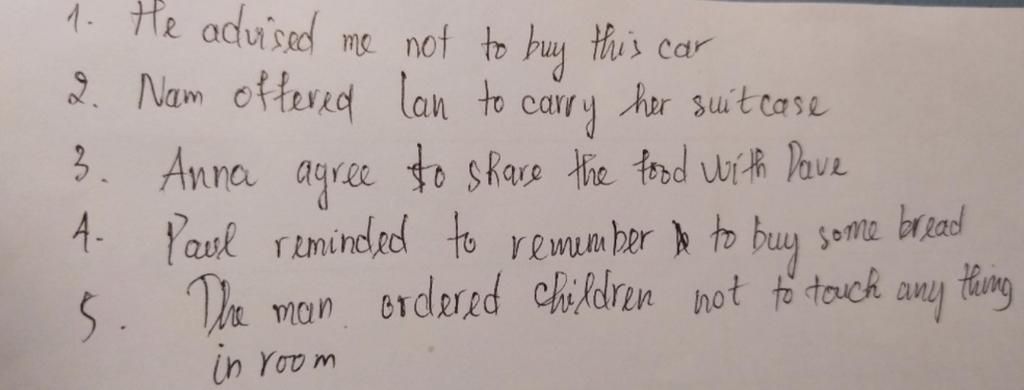 1. He advised me not to buy this car
2. Nam offered Lan to carry her suitcase
3. Anna agree to share the food with Dave
4. Paul reminded to remember to buy some bread
5. The man ordered children not to touch any thing
in room